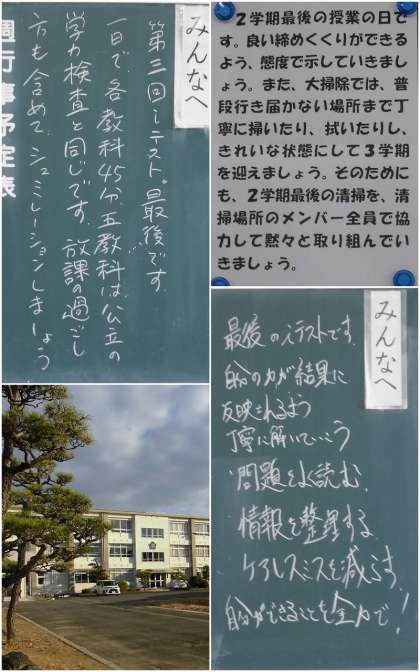 みんなへ
第三回iテスト。最後です。
一日で、各教科45分、五教科は公立の
学力検査と同じです。放課の過ごし
方も含めて、シュミレーションしましょう
週行事予定表
2学期最後の授業の日で
す。良い締めくくりができる
よう、態度で示していきまし
ょう。また、大掃除では、普
段行き届かない場所まで丁
寧に掃いたり、拭いたりし、
きれいな状態にして3学期
を迎えましょう。そのために
も、2学期最後の清掃を、清
掃場所のメンバー全員で協
力して黙々と取り組んでい
きましょう。
みんなへ
最後のiテストです。
自分の力が結果に
反映されるよう
丁寧に解いていこう
問題をよく読む。
情報を整理する
ケアレスミスを減らす。
自分ができることを全力で！